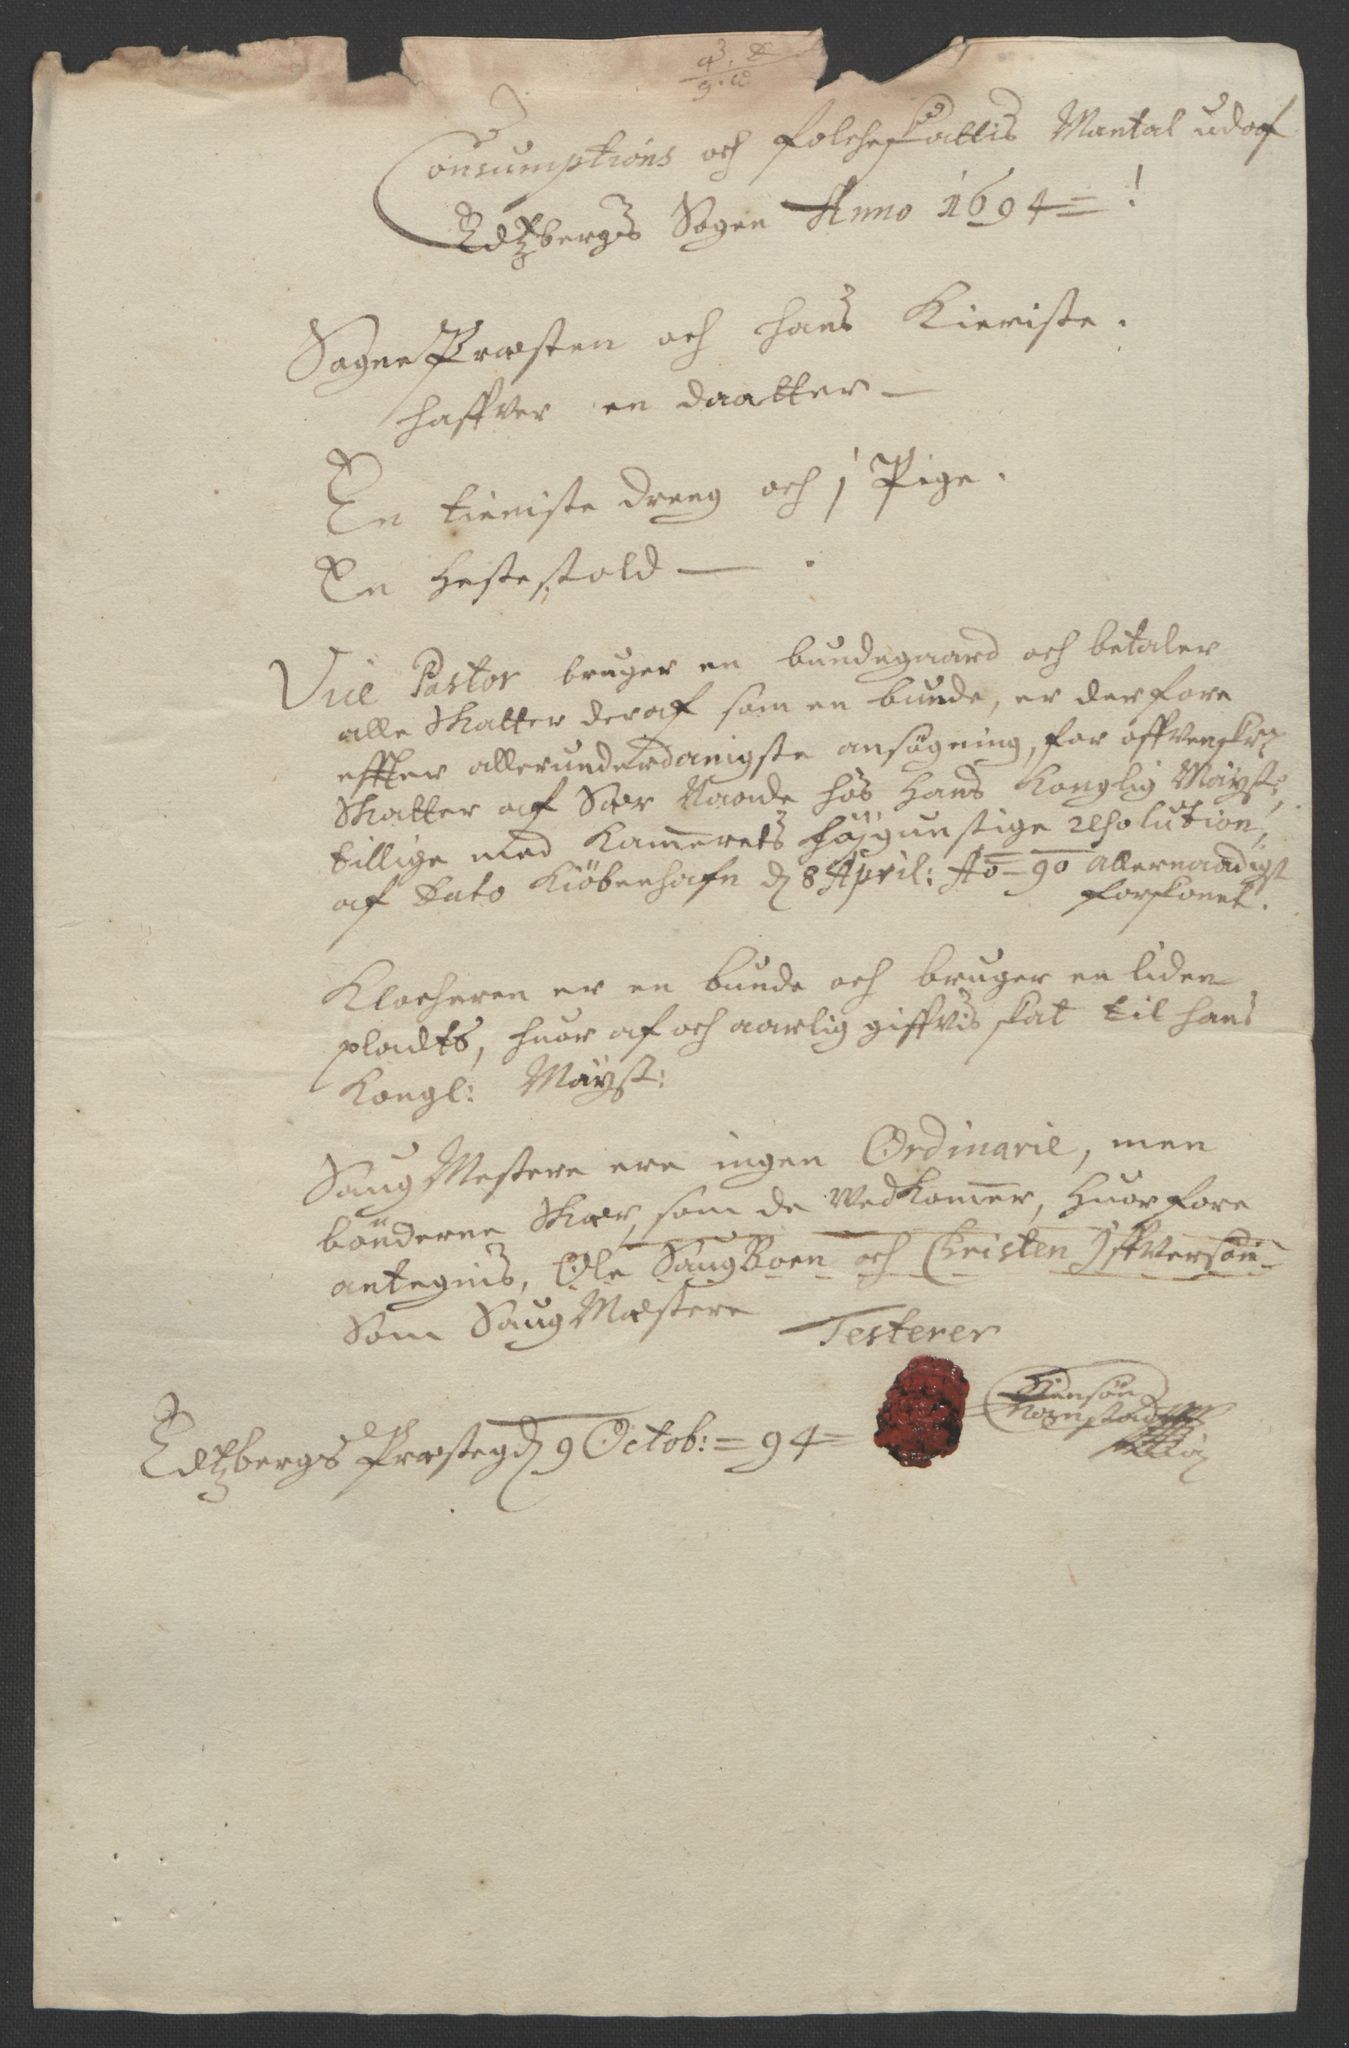 Consumptions och folcheskattis Mantal udaf
Edtzbergs Sogen Anno 1694 = !
SognePræsten och hans Kieriste.
haffver en daatter —
En tieniste dreng och 1 Pige.
En Hestestold — .
Vice Pastor bruger en bundegaard och betaler
alle Skatter deraf som en bunde, er derfore
effter allerunderdanigste ansøgning, for offvenskr:
Skatter af Sær Naade hos Hans Konglig Mayst:,
tillige med Kamerets høygunstige resolution,
af Dato Kiöbenhafn d 8 April: Ao = 90 allernaadigst
forskonet.
Klocheren er en bunde och bruger en liden
pladts, huor af och aarlig giffvis skat til hans
Kongl: Mayst:
SaugMestere ere ingen Ordinarie, men
bönderne Skær, som de vedkomer, Huorfore
antegnis, Ole SaugBoen och Christen Iffversön
Som SaugMæstere
Testerer
Edtzbergs Præstegd 9 Octob: = 94 =